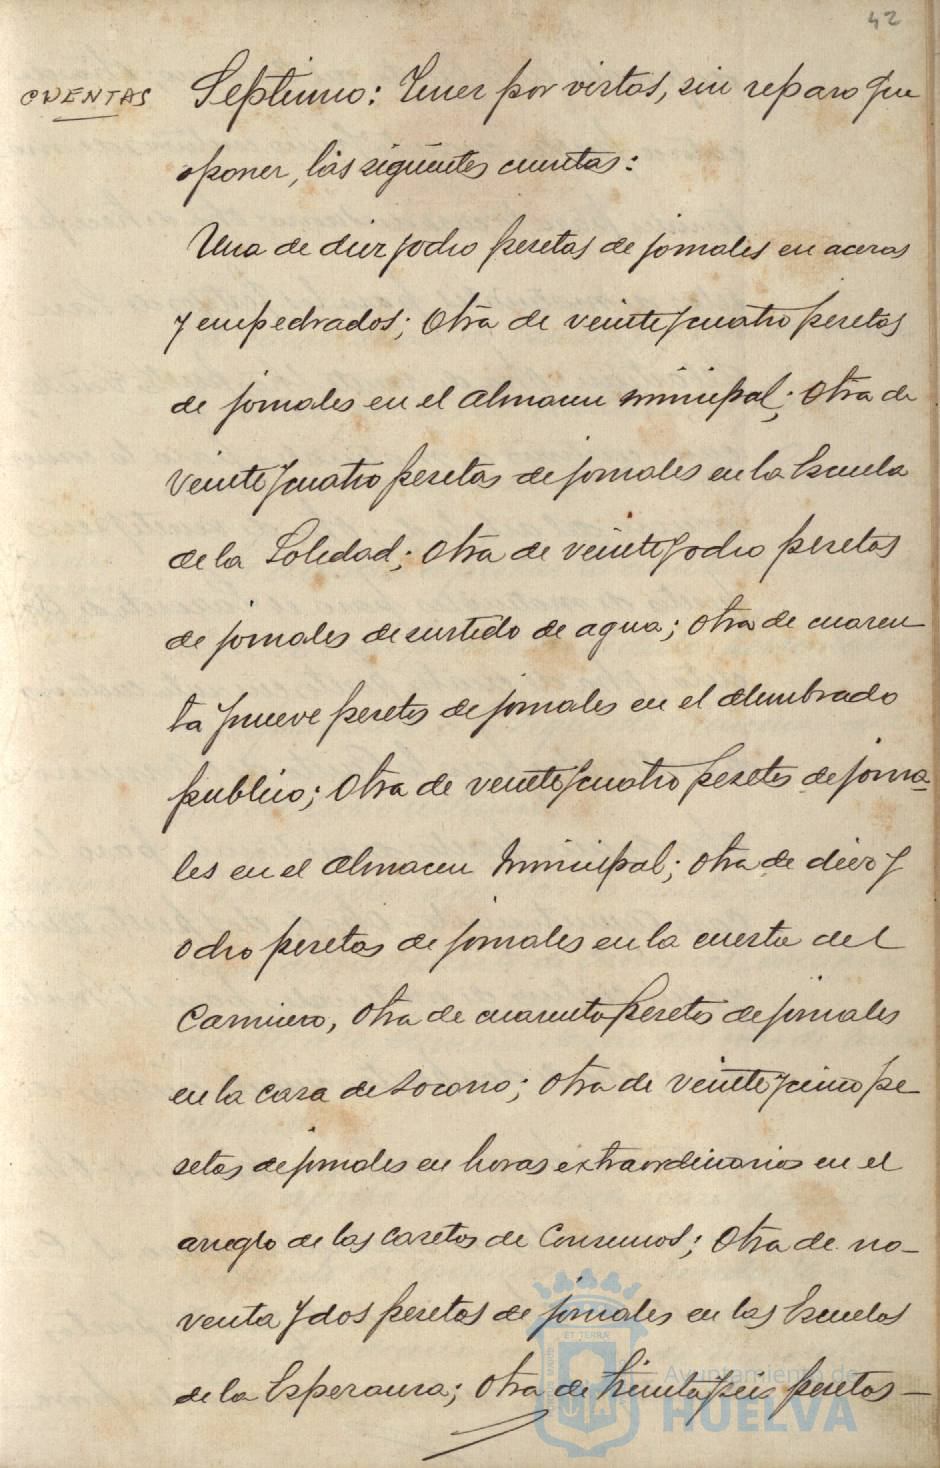 42
CUENTAS
Septimo: Tener por vistas, sin reparo que
oponer, las siguientes cuentas:
Una de diez y ocho pesetas de jornales en aceras
y empedrados; Otra de veinte y cuatro pesetas
de jornales en el almacen municipal; Otra de
veinte y cuatro pesetas de jornales en la Escuela
de la Soledad; Otra de veinte y ocho pesetas
de jornales de surtido de agua; Otra de cuaren
ta y nueve pesetas de jornales en el alumbrado
publico; Otra de veinte y cuatro pesetas de jorna-
les en el almacen Municipal; Otra de diez y
ocho pesetas de jornales en la cuesta del
Carnicero, Otra de cuarenta pesetas de jornales
en la casa de Socorro; Otra de veinte y cinco pe
setas de jornales en horas extraordinarias en el
arreglo de las casetas de Consumos; Otra de no-
venta y dos pesetas de jornales en las Escuelas
de la Esperanza; Otra de treinta y seis pesetas-
Ayuntamiento de
HUELVA